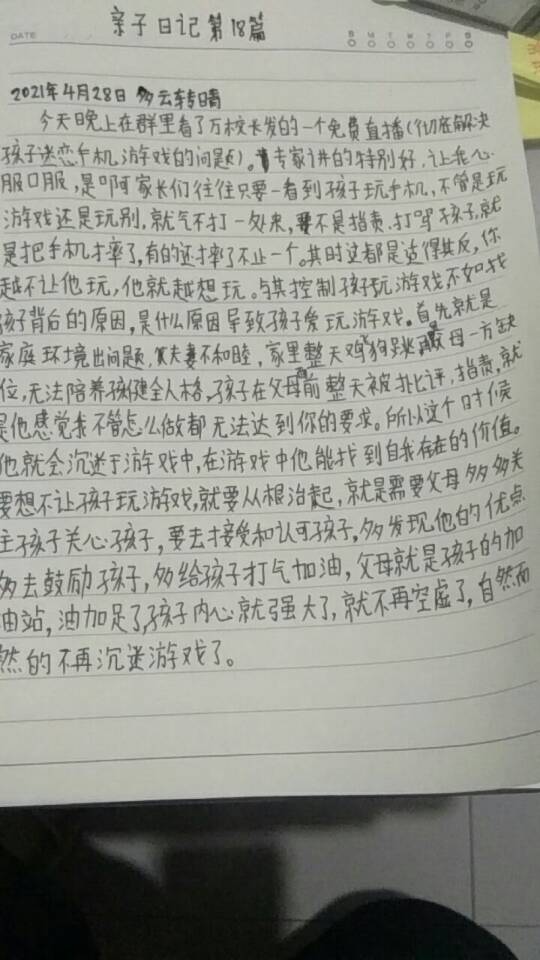 亲子日记第18篇
DATE
S M T W T F S
2021年4月28日 多云转晴
今天晚上在群里看了万校长发的一个免费直播(彻底解决
孩子迷恋手机游戏的问题)。专家讲的特别好,让我心
服口服,是啊家长们往往只要一看到孩子玩手机,不管是玩
游戏还是玩别,就气不打一处来,要不是指责,打骂孩子,就
是把手机才率了,有的还才率了不止一个。其时这都是适得其反,你
越不让他玩,他就越想玩。与其控制孩子玩游戏不如找
孩子背后的原因,是什么原因导致孩子爱玩游戏。首先就是
家庭环境出问题,夫妻不和睦,家里整天鸡狗跳,父母一方缺
位,无法陪养孩健全人格,孩子在父母前整天被批评,指责,就
是他感觉我不管怎么做都无法达到你的要求。所以这个时候
他就会沉迷于游戏中,在游戏中他能找到自我存在的价值。
要想不让孩子玩游戏,就要从根治起,就是需要父母多多关
注孩子关心孩子,要去接受和认可孩子,多发现他的优点
多去鼓励孩子,多给孩子打气加油,父母就是孩子的加
油站,油加足了,孩子内心就强大了,就不再空虚了,自然而
然的不再沉迷游戏了。